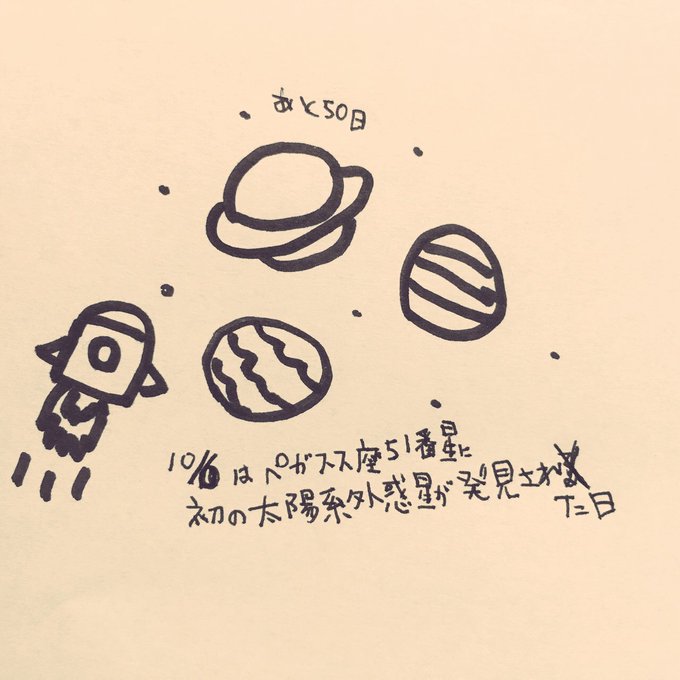 あと50日
10/6はペガスス座51番星に
初の太陽系外惑星が発見され
た日